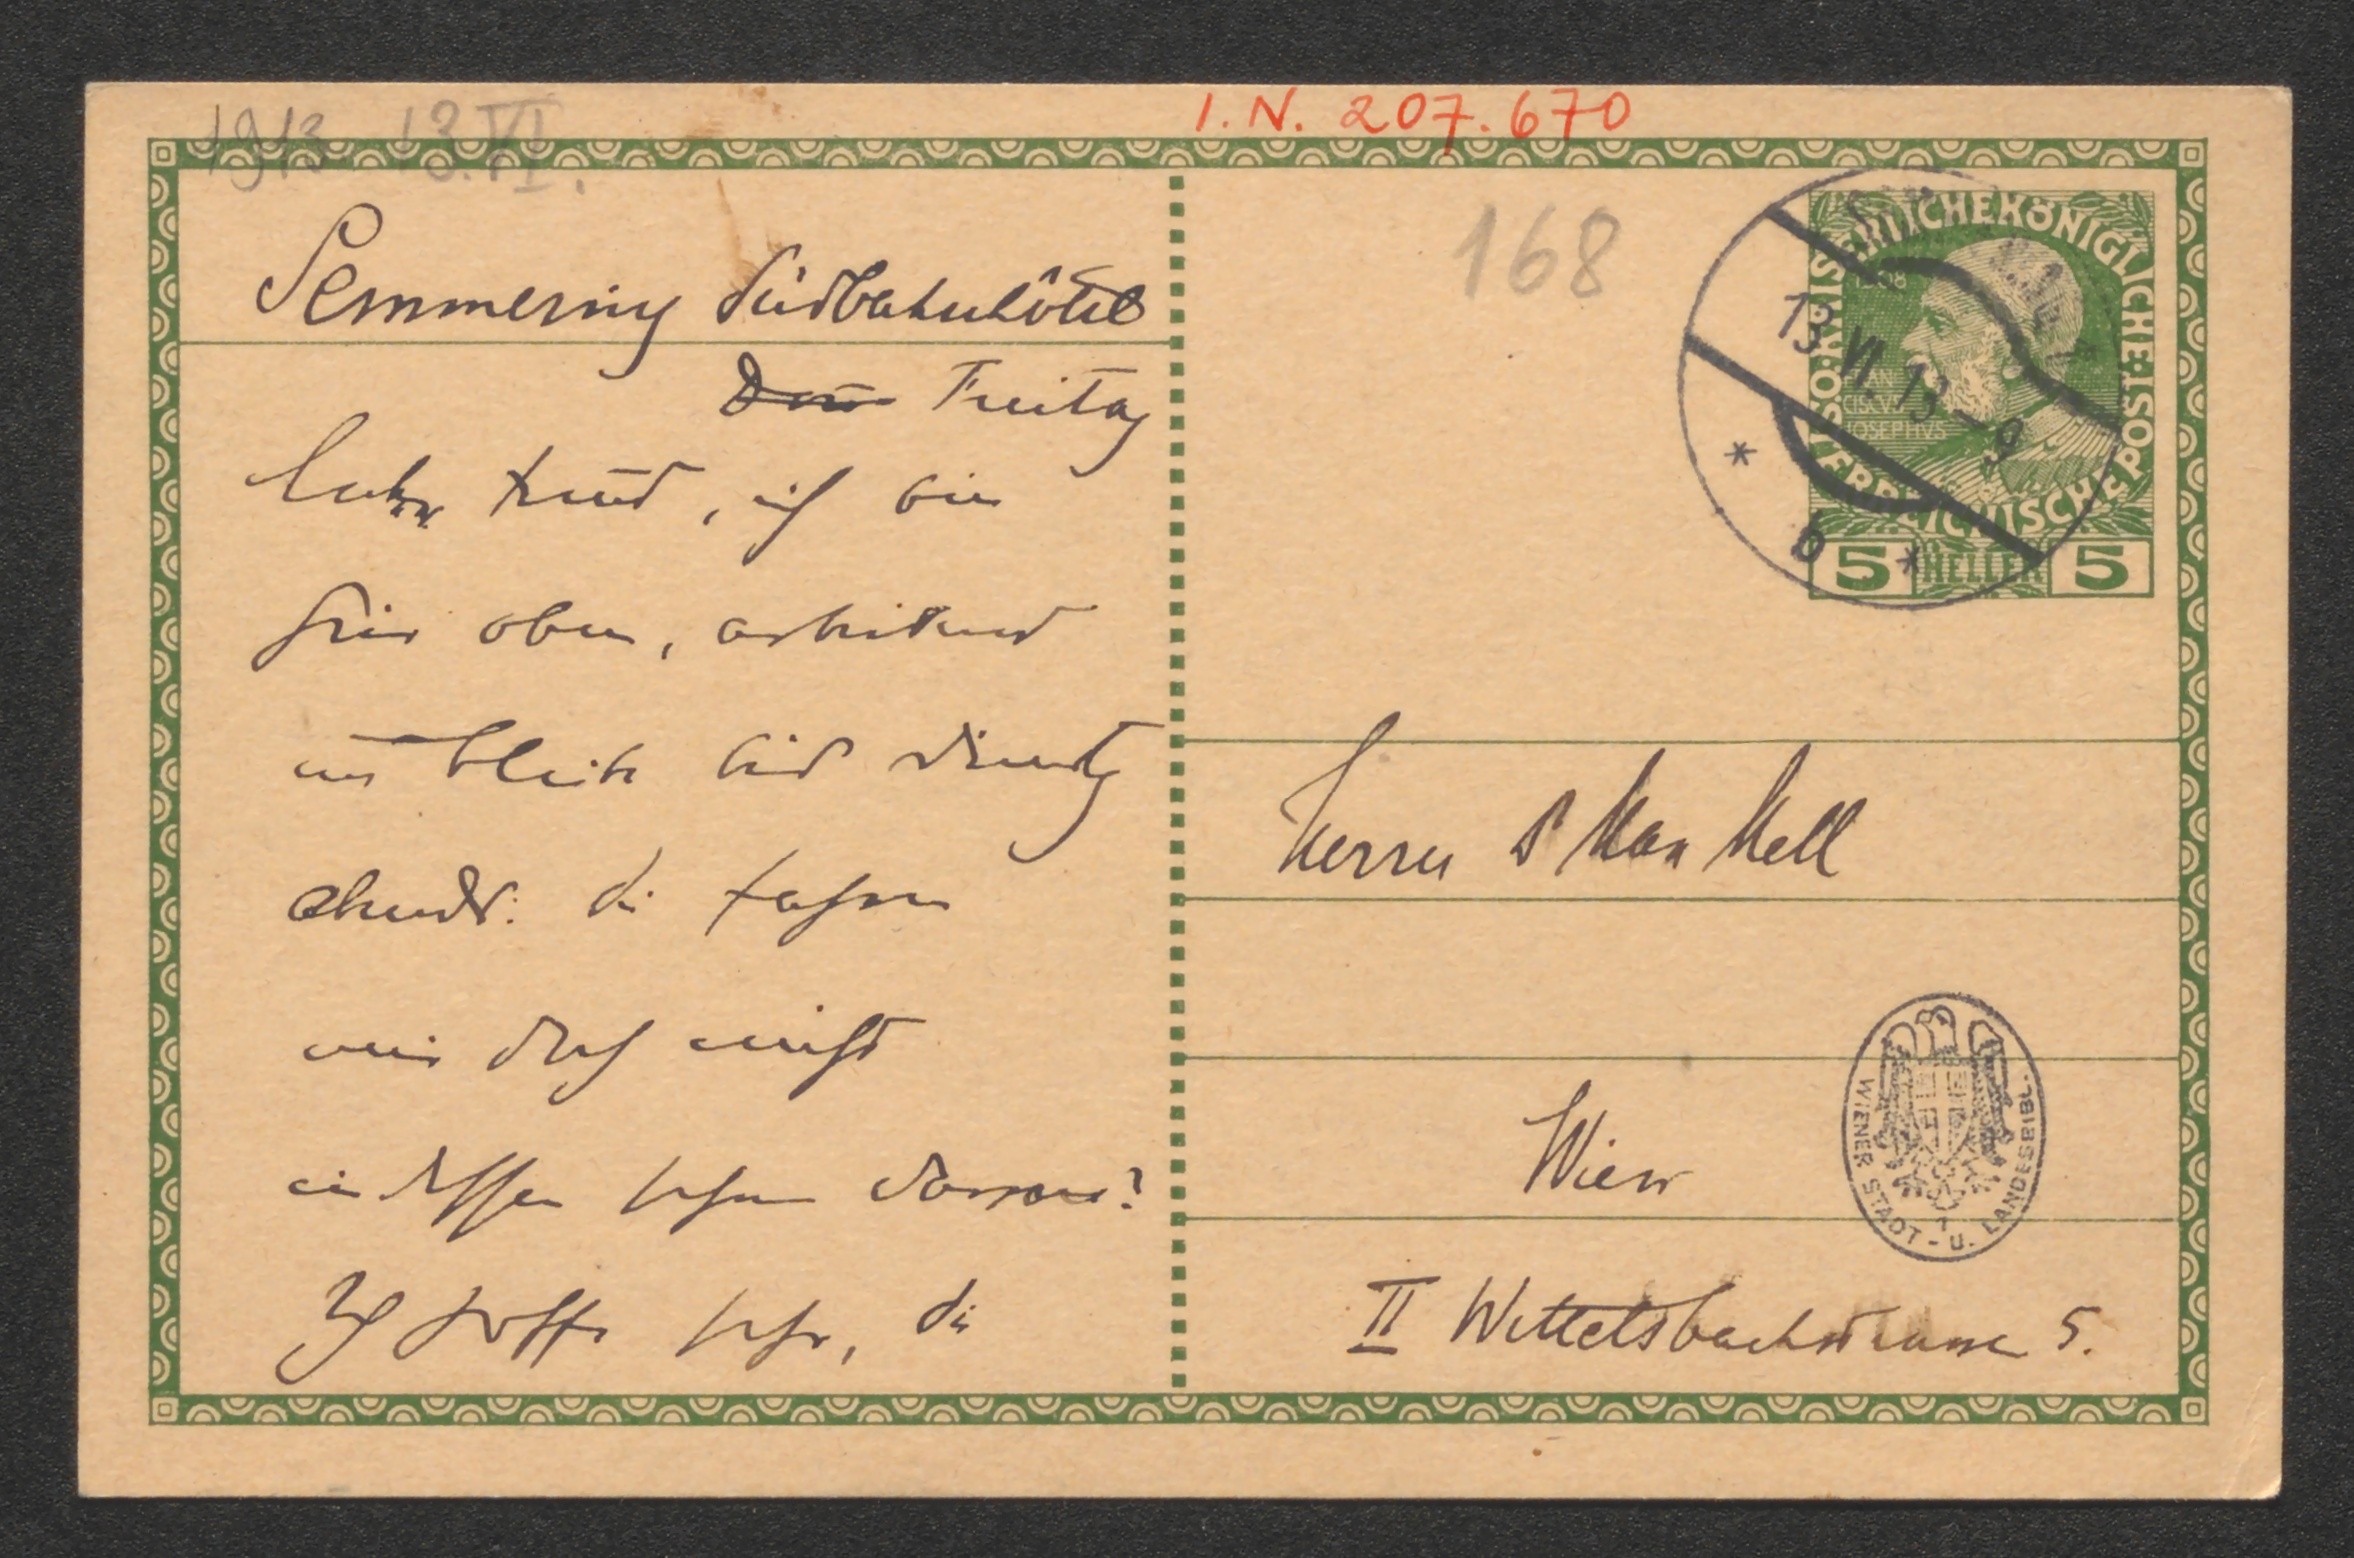 1913 13. VI.
I.N. 207.670
168
Semmering Südbahnhôtel
Freitag
lieber Freund, ich bin
hier oben, arbeitend
und bleibe bis Dienstag
abends. Sie fahren
mir doch nicht
indessen schon davon?
Ich hoffe sehr, Sie
KAISERLICHE KÖNIGLICHE
ÖSTERREICHISCHE POST
1908
FRANCISCVS
JOSEPHVS
5 HELLER 5
13 VI. 13 - 9
* b *
Herrn Dr Max Mell
Wien
II Wittelsbachstrasse 5.
WIENER STADT - U. LANDESBIBL.